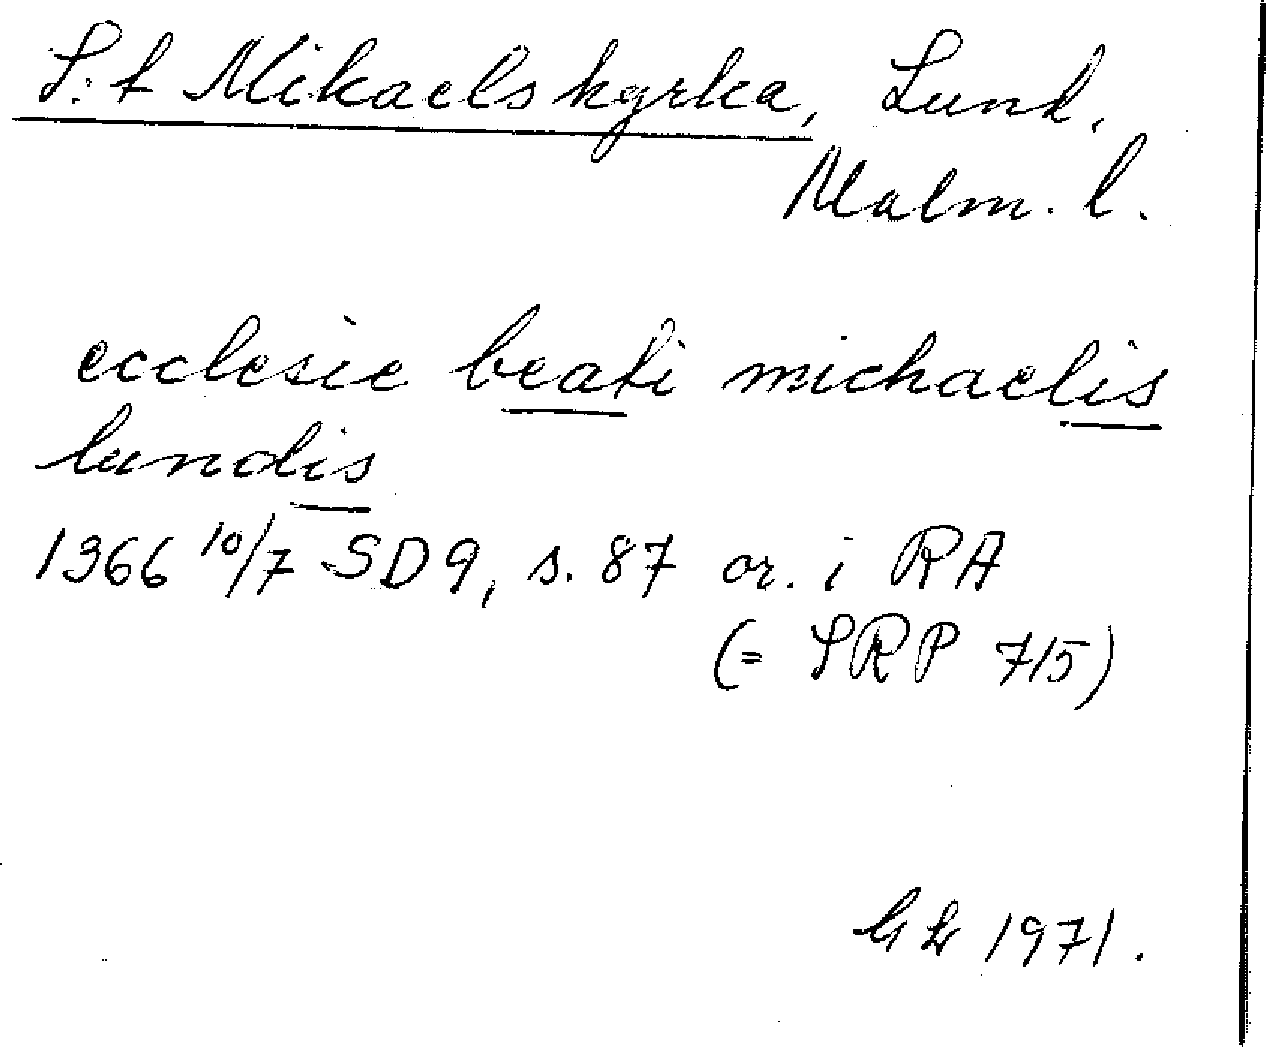 S:t Mikaelskyrka, Lund.
Malm. l.
ecclesie beati michaelis
lundis
1366 10/7 SD9, s. 87 or. i RA
(= SRP 715)
1971.